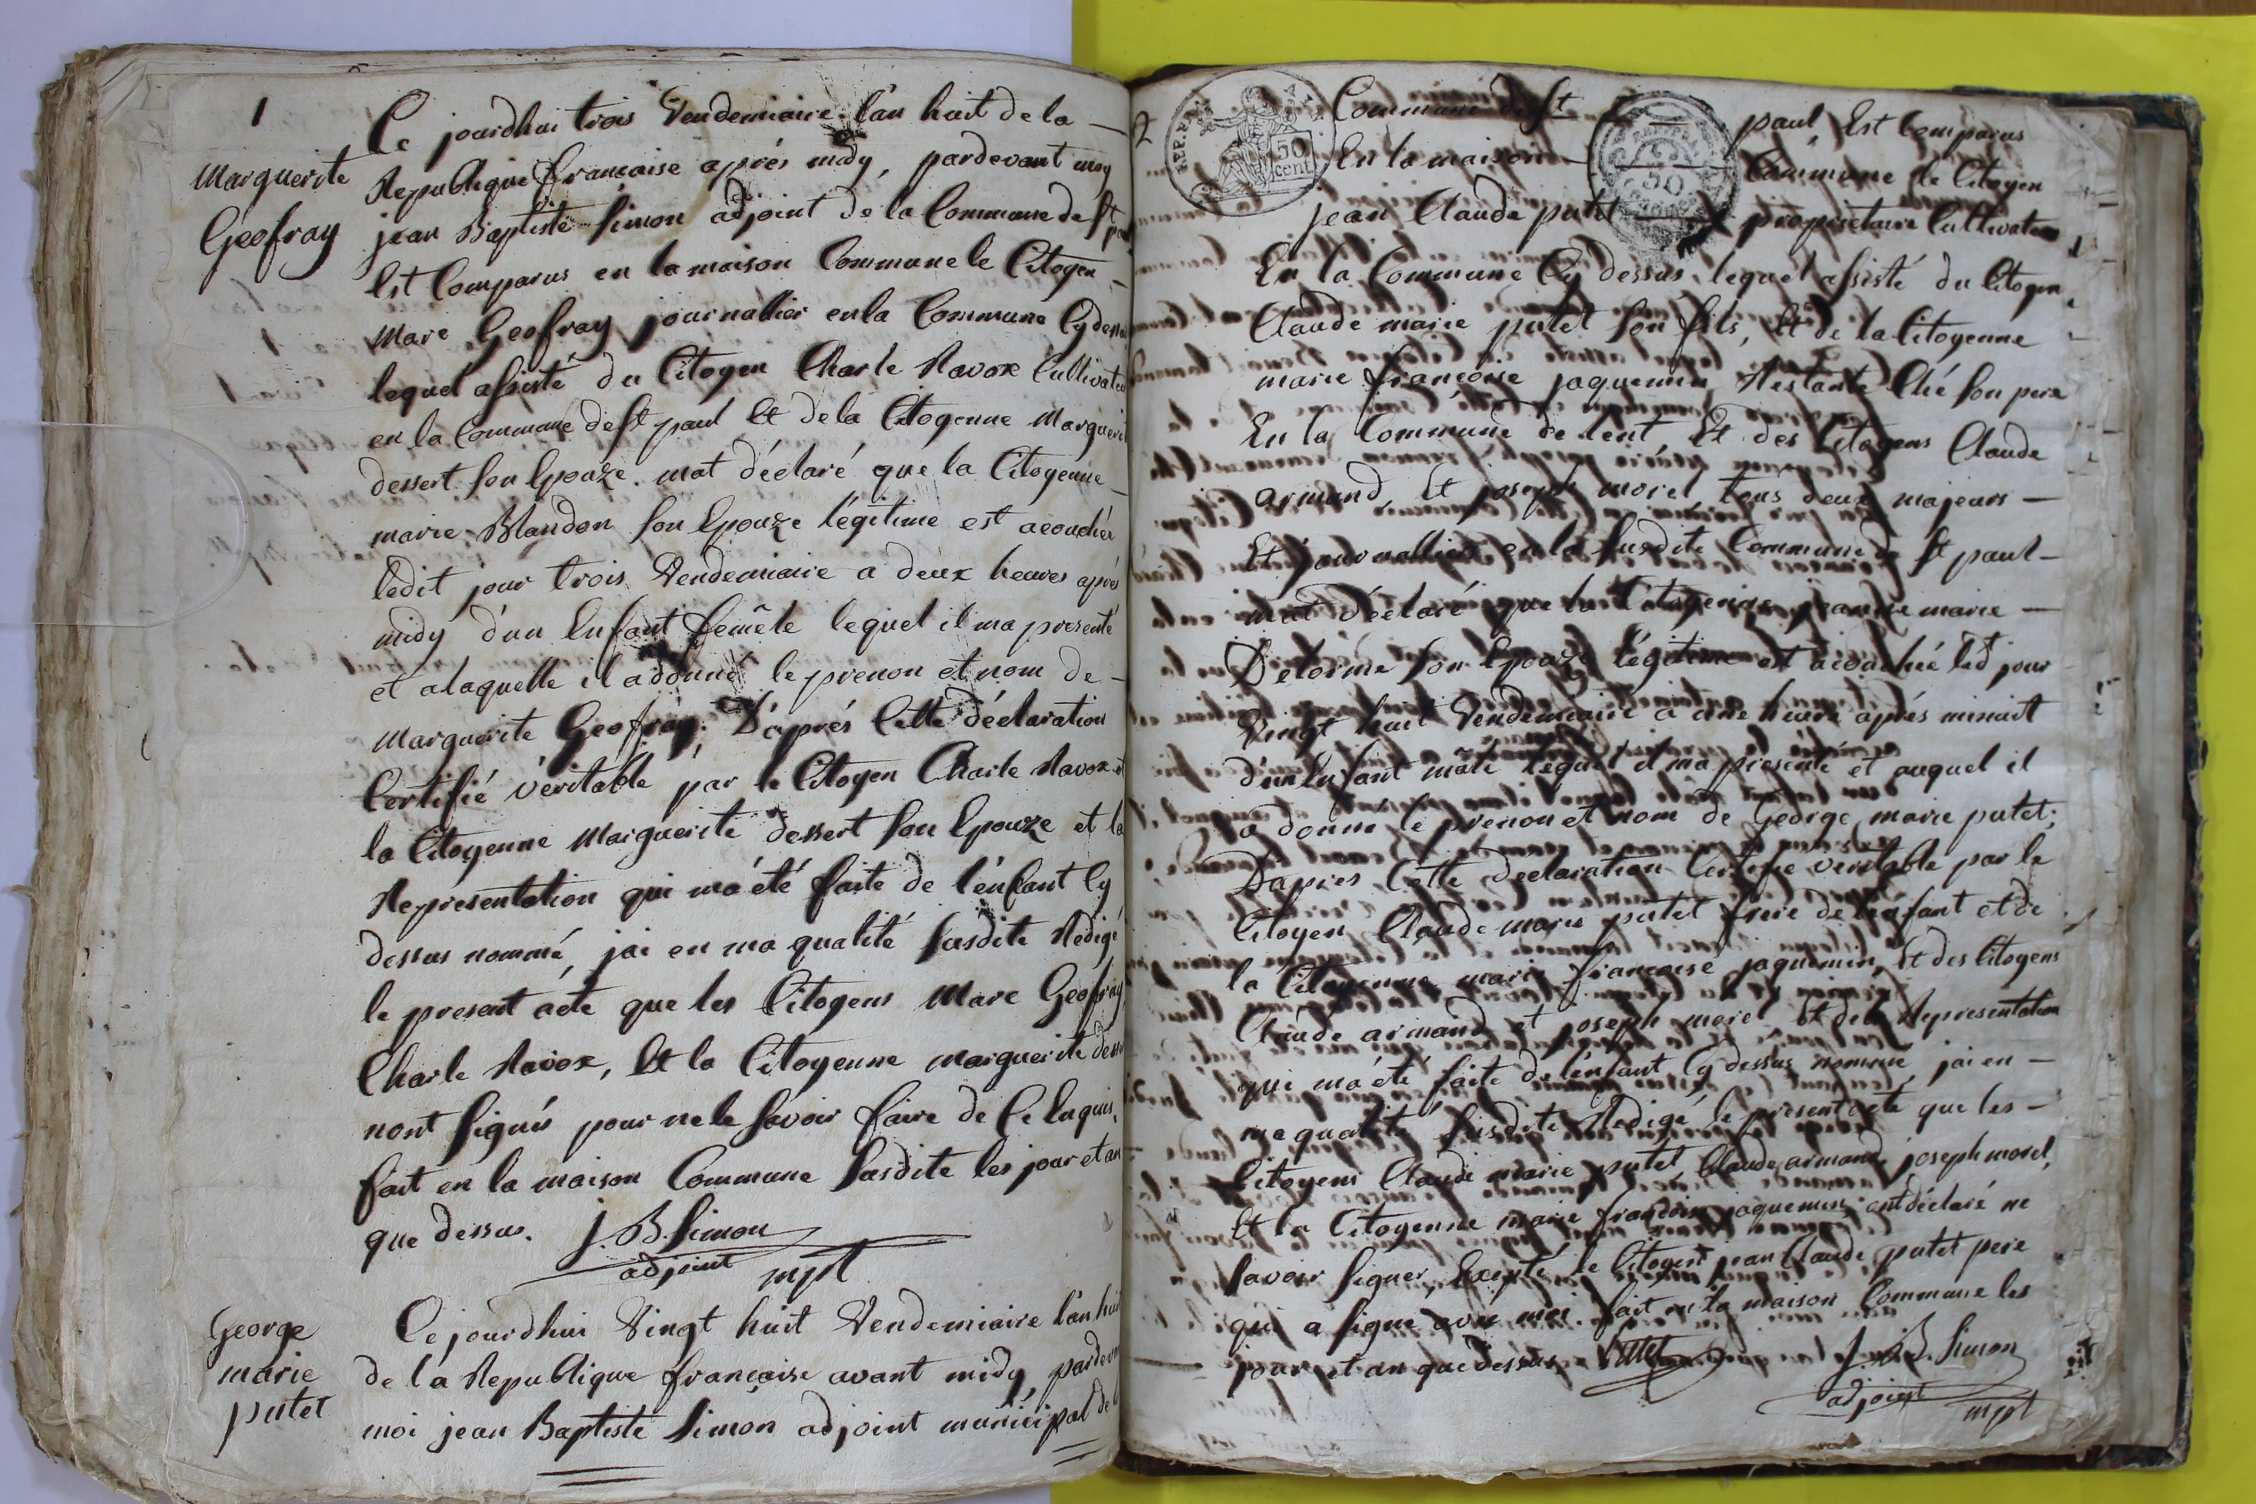 1
Marguerite
Geofray
Ce jourdhui trois Vendemiaire l'an huit de la
Republique française aprés midy, pardevant moy
jean Baptiste Simon adjoint de la Commune de St paul
Est Comparus en la maison Commune le Citoyen
Marc Geofray journallier en la Commune Cy dessus
lequel assisté du Citoyen Charle Ravox Cultivateur
en la Commune de St paul Et de la Citoyenne Marguerite
dessert son Epouze. mat déclaré que la Citoyenne
marie Blandon son Epouze légitime est acouchée
ledit jour trois Vendemiaire a deux heures aprés
midy d'un Enfant femêle lequel il ma presenté
et alaquelle il a donné le prenon et nom de
Marguerite Geofray; D'aprés Cette déclaration
Certifié véritable par le Citoyen Charle Ravox et
la Citoyenne Marguerite dessert son Epouze et la
Representation qui má été faite de l'énfant Cy
dessus nommé, jai en ma qualité susdite Redigé
le present acte que les Citoyens Marc Geofray
Charle Ravox, Et la Citoyenne marguerite dessert
nont signés pour ne le savoir faire de Ce Enquis,
fait en la maison Commune susdite les jour et an
que dessus. J. B. Simon
adjoint mpl
George
marie
putet
Ce jourdhui Vingt huit Vendemiaire l'an huit
de la Republique française avant midy, pardevant
moi jean Baptiste Simon adjoint municipal de la
2
REP. FRA.
50
cent
50
Commune de St paul Est Comparus
En la maison Commune le Citoyen
jean Claude putet propriétaire Cultivateur
En la Commune Cy dessus, lequel assisté du Citoyen
Claude marie putet son fils, Et de la Citoyenne
marie françoise jaquemin Restante Ché son pere
En la Commune de lent, Et des Citoyens Claude
armand, Et joseph morel tous deux majeurs
Et journalliers en la susdite Commune de St paul
mat déclaré que la Citoyenne jeanne marie
Delorme son Epouze légitime est acouchée led jour
Vingt huit Vendemiaire a une heure aprés minuit
d'un Enfant mâle lequel il ma presenté et auquel il
a donné le prenon et nom de George marie putet;
D'apres Cette déclaration Certifié veritable par le
Citoyen Claude marie putet frere de l'enfant et de
la Citoyenne marie françoise jaquemin, Et des Citoyens
Claude armand et joseph morel Et de la Representation
qui má été faite de l'énfant Cy dessus nommé, jai en
ma qualité susdite Redigé le present acte que les
Citoyens Claude marie putet, Claude armand, joseph morel,
Et la Citoyenne marie françoise jaquemin, ont déclaré ne
savoir signer, Excepté le Citoyen jean Claude putet pere
qui a signé avec moi. fait en la maison Commune les
jour et an que dessus. Putet J. B. Simon
adjoint mpl